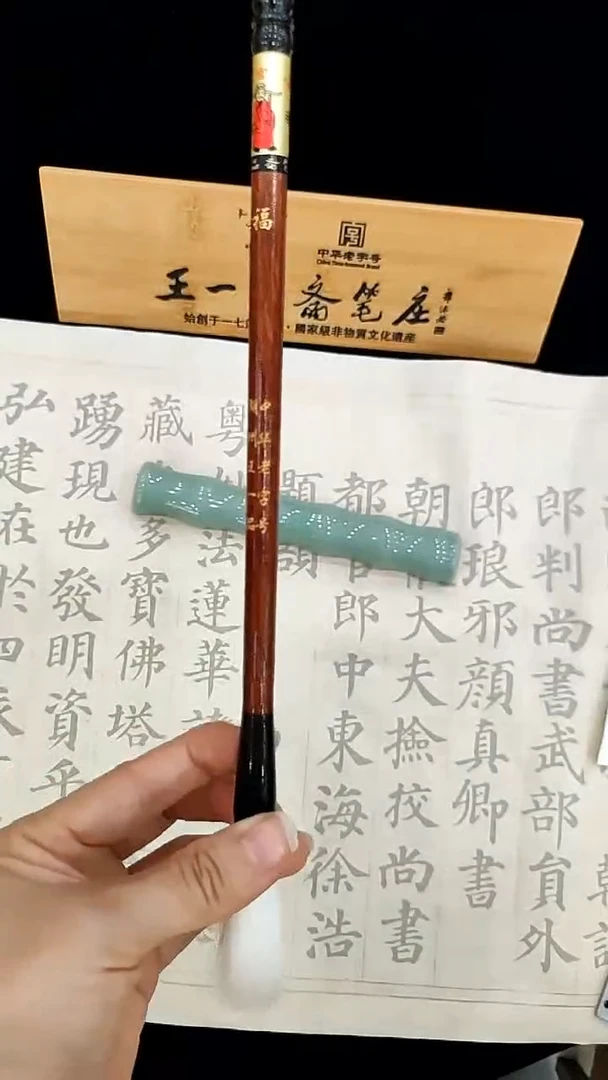 福
中华老字号
王一
中华老字号
China Time-honored Brand
王一 斋笔庄
始創于一七 · 國家級非物質文化遺産
郎判尚書武部貟外
郎琅邪顏真卿書
朝 大夫撿挍尚書
都 郎中東海徐浩
題額
粵 法蓮華
藏 多寶佛塔
踴現也發明資乎
弘建在於四